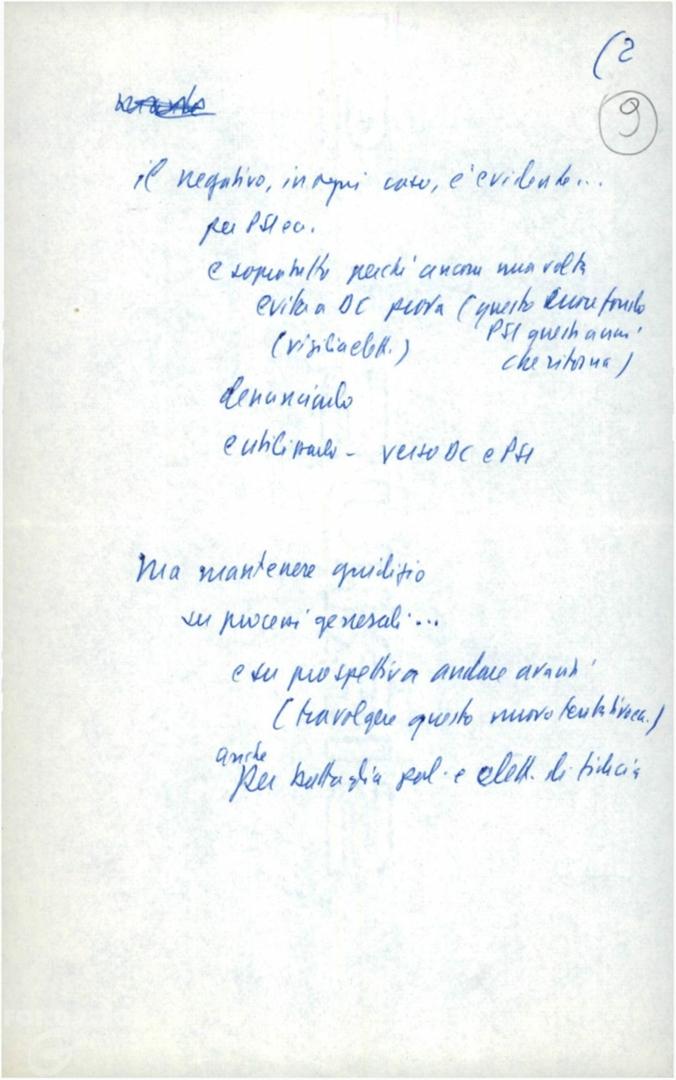 (2
9
il negativo, in ogni caso, è evidente...
per PSI ecc.
e sopratutto perché ancora una volta
evita a DC prova (questo
PSI questi anni
(vigilia elett.)
che ritorna)
denunciarlo
e utilizzarlo - verso DC e PSI
Ma mantenere giudizio
su processi generali...
e su prospettiva andare avanti
(travolgere questo nuovo tentativo ecc.)
anche
per battaglia pol. e elett. di fiducia